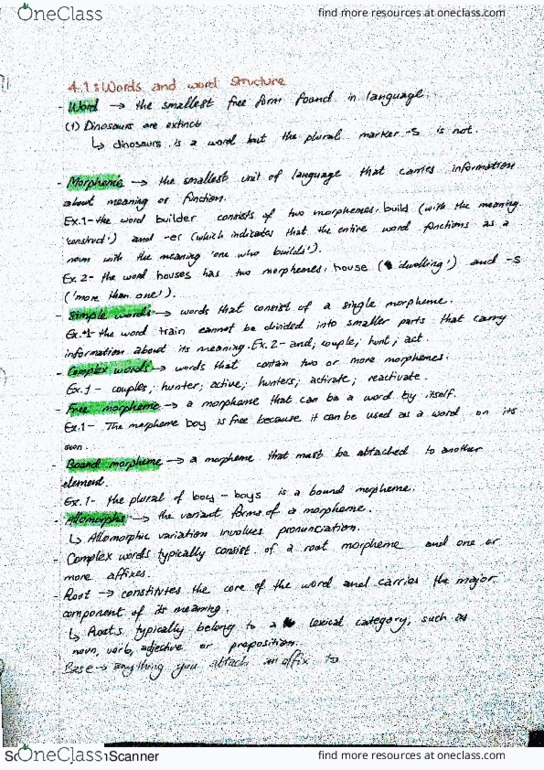 OneClass
find more resources at oneclass.com
4.1: Words and word Structure
- Word → the smallest free form found in language.
(1) Dinosaurs are extinct
↳ dinosaurs is a word but the plural marker -s is not.
- Morpheme → the smallest unit of language that carries information
about meaning or function.
Ex.1- the word builder consists of two morphemes. build (with the meaning
'construct') and -er (which indicates that the entire word functions as a
noun with the meaning 'one who builds').
Ex. 2- the word houses has two morphemes, house ('dwelling') and -s
('more than one').
- Simple words → words that consist of a single morpheme.
Ex.1- the word train cannot be divided into smaller parts that carry
information about its meaning. Ex. 2- and, couple, hunt, act
- Complex words → words that contain two or more morphemes.
Ex.1 - couples, hunter, active, hunters, activate, reactivate.
- Free morpheme → a morpheme that can be a word by itself.
Ex.1- The morpheme boy is free because it can be used as a word on its
own.
- Bound morpheme → a morpheme that must be attached to another
element.
Ex.1- the plural of boy - boys is a bound morpheme.
- Allomorphs → the variant forms of a morpheme.
↳ Allomorphic variation involves pronunciation.
- Complex words typically consist of a root morpheme and one or
more affixes.
- Root → constitutes the core of the word and carries the major
component of its meaning.
↳ Roots typically belong to a lexical category, such as
noun, verb, adjective or preposition.
- Base → anything you attach an affix to
OneClass
Scanner
find more resources at oneclass.com